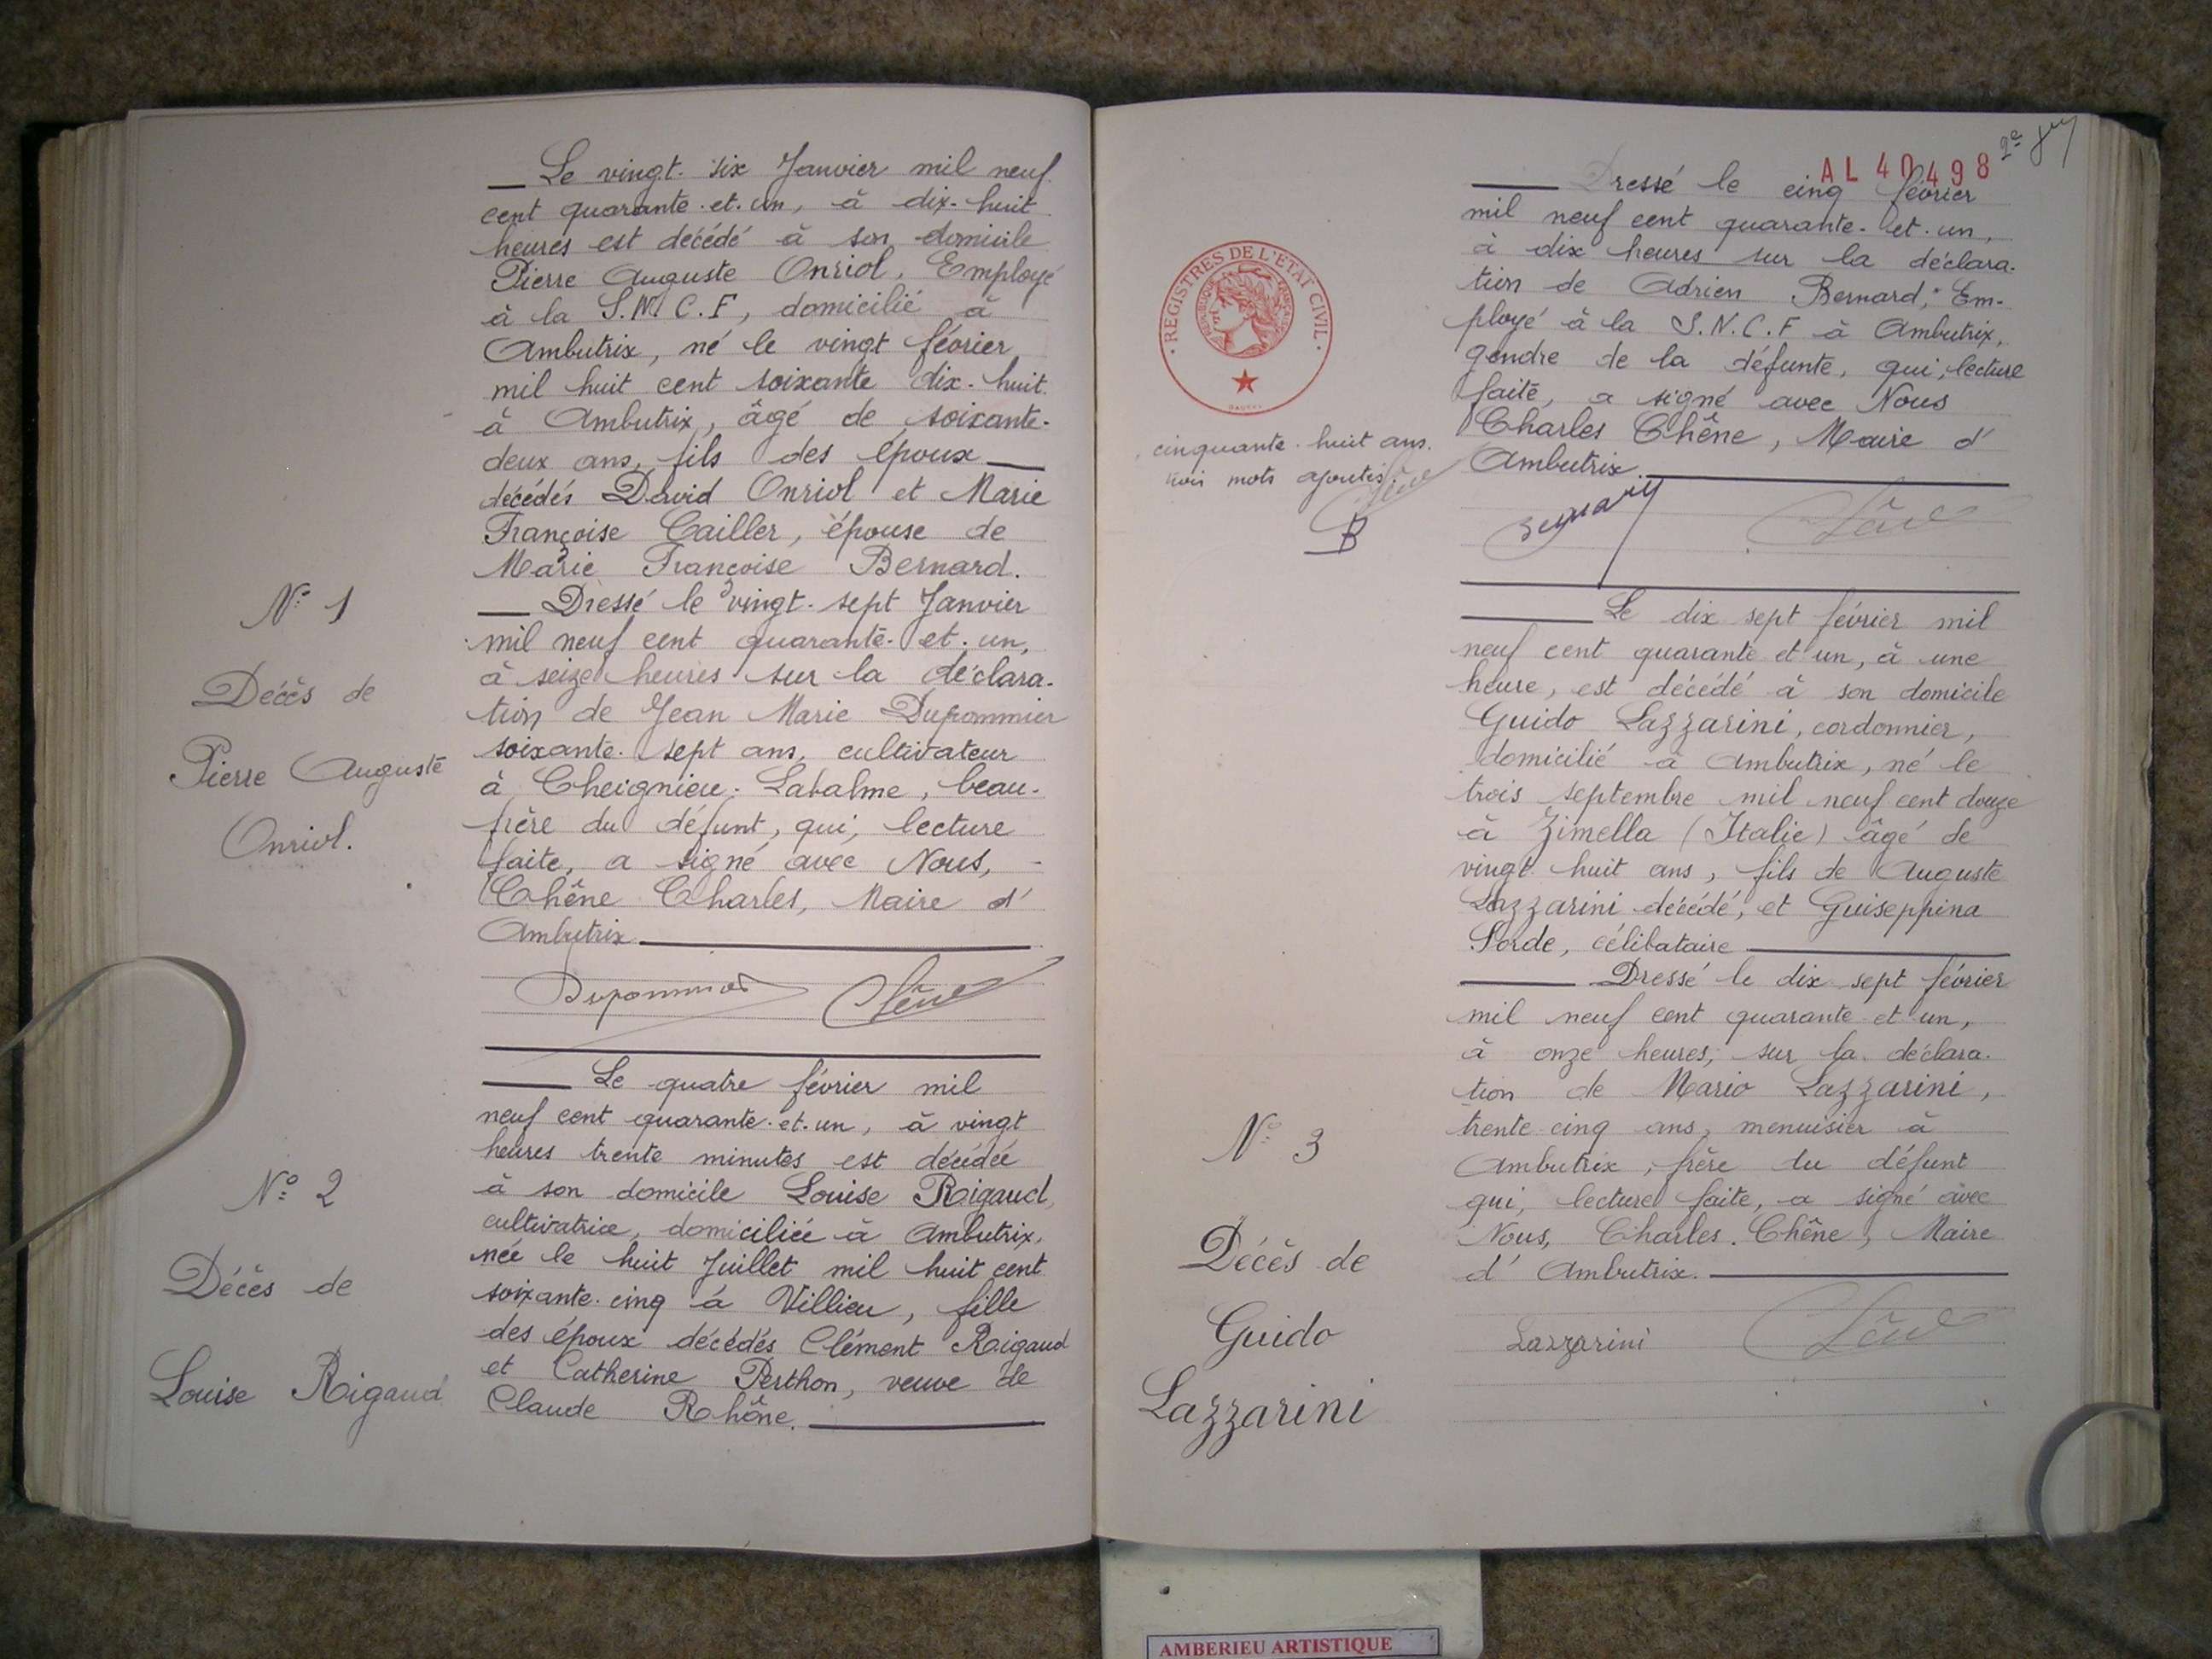 Le vingt-six Janvier mil neuf
cent quarante-et-un, à dix-huit
heures est décédé à son domicile
Pierre Auguste Onriol, Employé
à la S.N.C.F, domicilié à
Ambutrix, né le vingt février
mil huit cent soixante dix-huit
à Ambutrix, âgé de soixante-
deux ans, fils des époux
décédés David Onriol et Marie
Françoise Cailler, épouse de
Marie Françoise Bernard.
N° 1
Décès de
Pierre Auguste
Onriol.
Dressé le vingt-sept Janvier
mil neuf cent quarante-et-un,
à seize heures sur la déclara-
tion de Jean Marie Dupommier
soixante-sept ans, cultivateur
à Cheignieu-Labalme, beau-
frère du défunt, qui, lecture
faite, a signé avec Nous,
Chêne Charles, Maire d'
Ambutrix
Dupommier Chêne
N° 2
Décès de
Louise Rigaud
Le quatre février mil
neuf cent quarante-et-un, à vingt
heures trente minutes est décédée
à son domicile Louise Rigaud,
cultivatrice, domiciliée à Ambutrix,
née le huit Juillet mil huit cent
soixante-cinq à Villieu, fille
des époux décédés Clément Rigaud
et Catherine Perthon, veuve de
Claude Rhône.
AL 40498
2e
Dressé le cinq février
mil neuf cent quarante-et-un,
à dix heures sur la déclara-
tion de Adrien Bernard, Em-
ployé à la S.N.C.F à Ambutrix,
gendre de la défunte, qui, lecture
faite, a signé avec Nous
Charles Chêne, Maire d'
Ambutrix.
REGISTRES DE L'ETAT CIVIL
REPUBLIQUE FRANCAISE
, cinquante-huit ans.
trois mots ajoutés.
Chêne
B
Bernard Chêne
Le dix sept février mil
neuf cent quarante et un, à une
heure, est décédé à son domicile
Guido Lazzarini, cordonnier,
domicilié à Ambutrix, né le
trois septembre mil neuf cent douze
à Zimella (Italie) âgé de
vingt huit ans, fils de Auguste
Lazzarini décédé, et Guiseppina
Sorde, célibataire
N° 3
Décès de
Guido
Lazzarini
Dressé le dix sept février
mil neuf cent quarante et un,
à onze heures, sur la déclara-
tion de Mario Lazzarini,
trente-cinq ans, menuisier à
Ambutrix, frère du défunt
qui, lecture faite, a signé avec
Nous, Charles Chêne, Maire
d'Ambutrix.
Lazzarini Chêne
AMBERIEU ARTISTIQUE